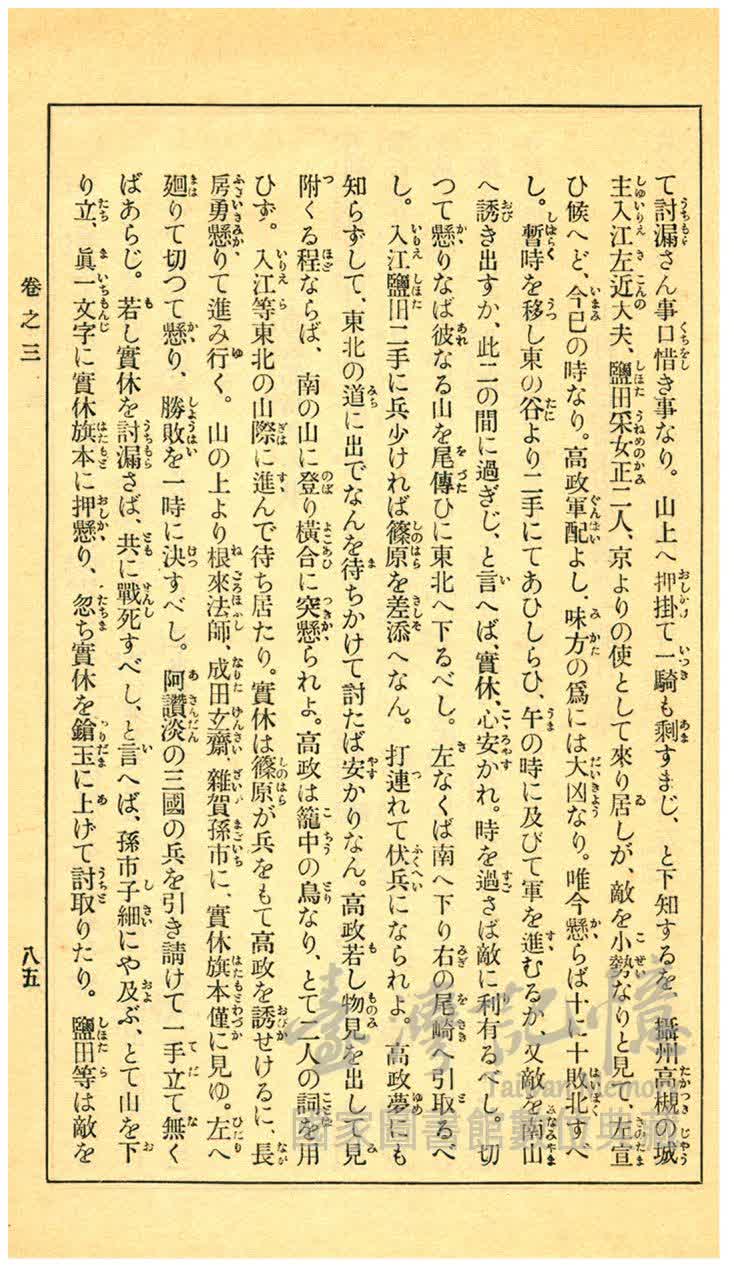 て討漏さん事口惜き事なり。山上へ押掛て一騎も剩すまじ、と下知するを、攝州高槻の城
主入江左近大夫、鹽田采女正二人、京よりの使として來り居しが、敵を小勢なりと見て、左宣
ひ候へど、今巳の時なり。高政軍配よし、味方の爲には大凶なり。唯今懸らば十に十敗北すべ
し。暫時を移し東の谷より二手にてあひしらひ、午の時に及びて軍を進むるか、又敵を南山
へ誘き出すか、此二の間に過ぎじ、と言へば、實休、心安かれ。時を過さば敵に利有るべし。切
つて懸りなば彼なる山を尾傳ひに東北へ下るべし。左なくば南へ下り右の尾崎へ引取るべ
し。入江鹽田二手に兵少ければ篠原を差添へなん。打連れて伏兵になられよ。高政夢にも
知らずして、東北の道に出でなんを待ちかけて討たば安かりなん。高政若し物見を出して見
附くる程ならば、南の山に登り橫合に突懸られよ。高政は籠中の鳥なり、とて二人の詞を用
ひず。入江等東北の山際に進んで待ち居たり。實休は篠原が兵をもて高政を誘せけるに、長
房勇懸りて進み行く。山の上より根來法師、成田玄齋、雜賀孫市に、實休旗本僅に見ゆ。左へ
廻りて切つて懸り、勝敗を一時に決すべし。阿讚淡の三國の兵を引き請けて一手立て無く
ばあらじ。若し實休を討漏さば、共に戰死すべし、と言へば、孫市子細にや及ぶ、とて山を下
り立、眞一文字に實休旗本に押懸り、忽ち實休を鎗玉に上げて討取りたり。鹽田等は敵を
卷之三
八五
臺灣記憶
Taiwan Memory
國家圖書館數位典藏